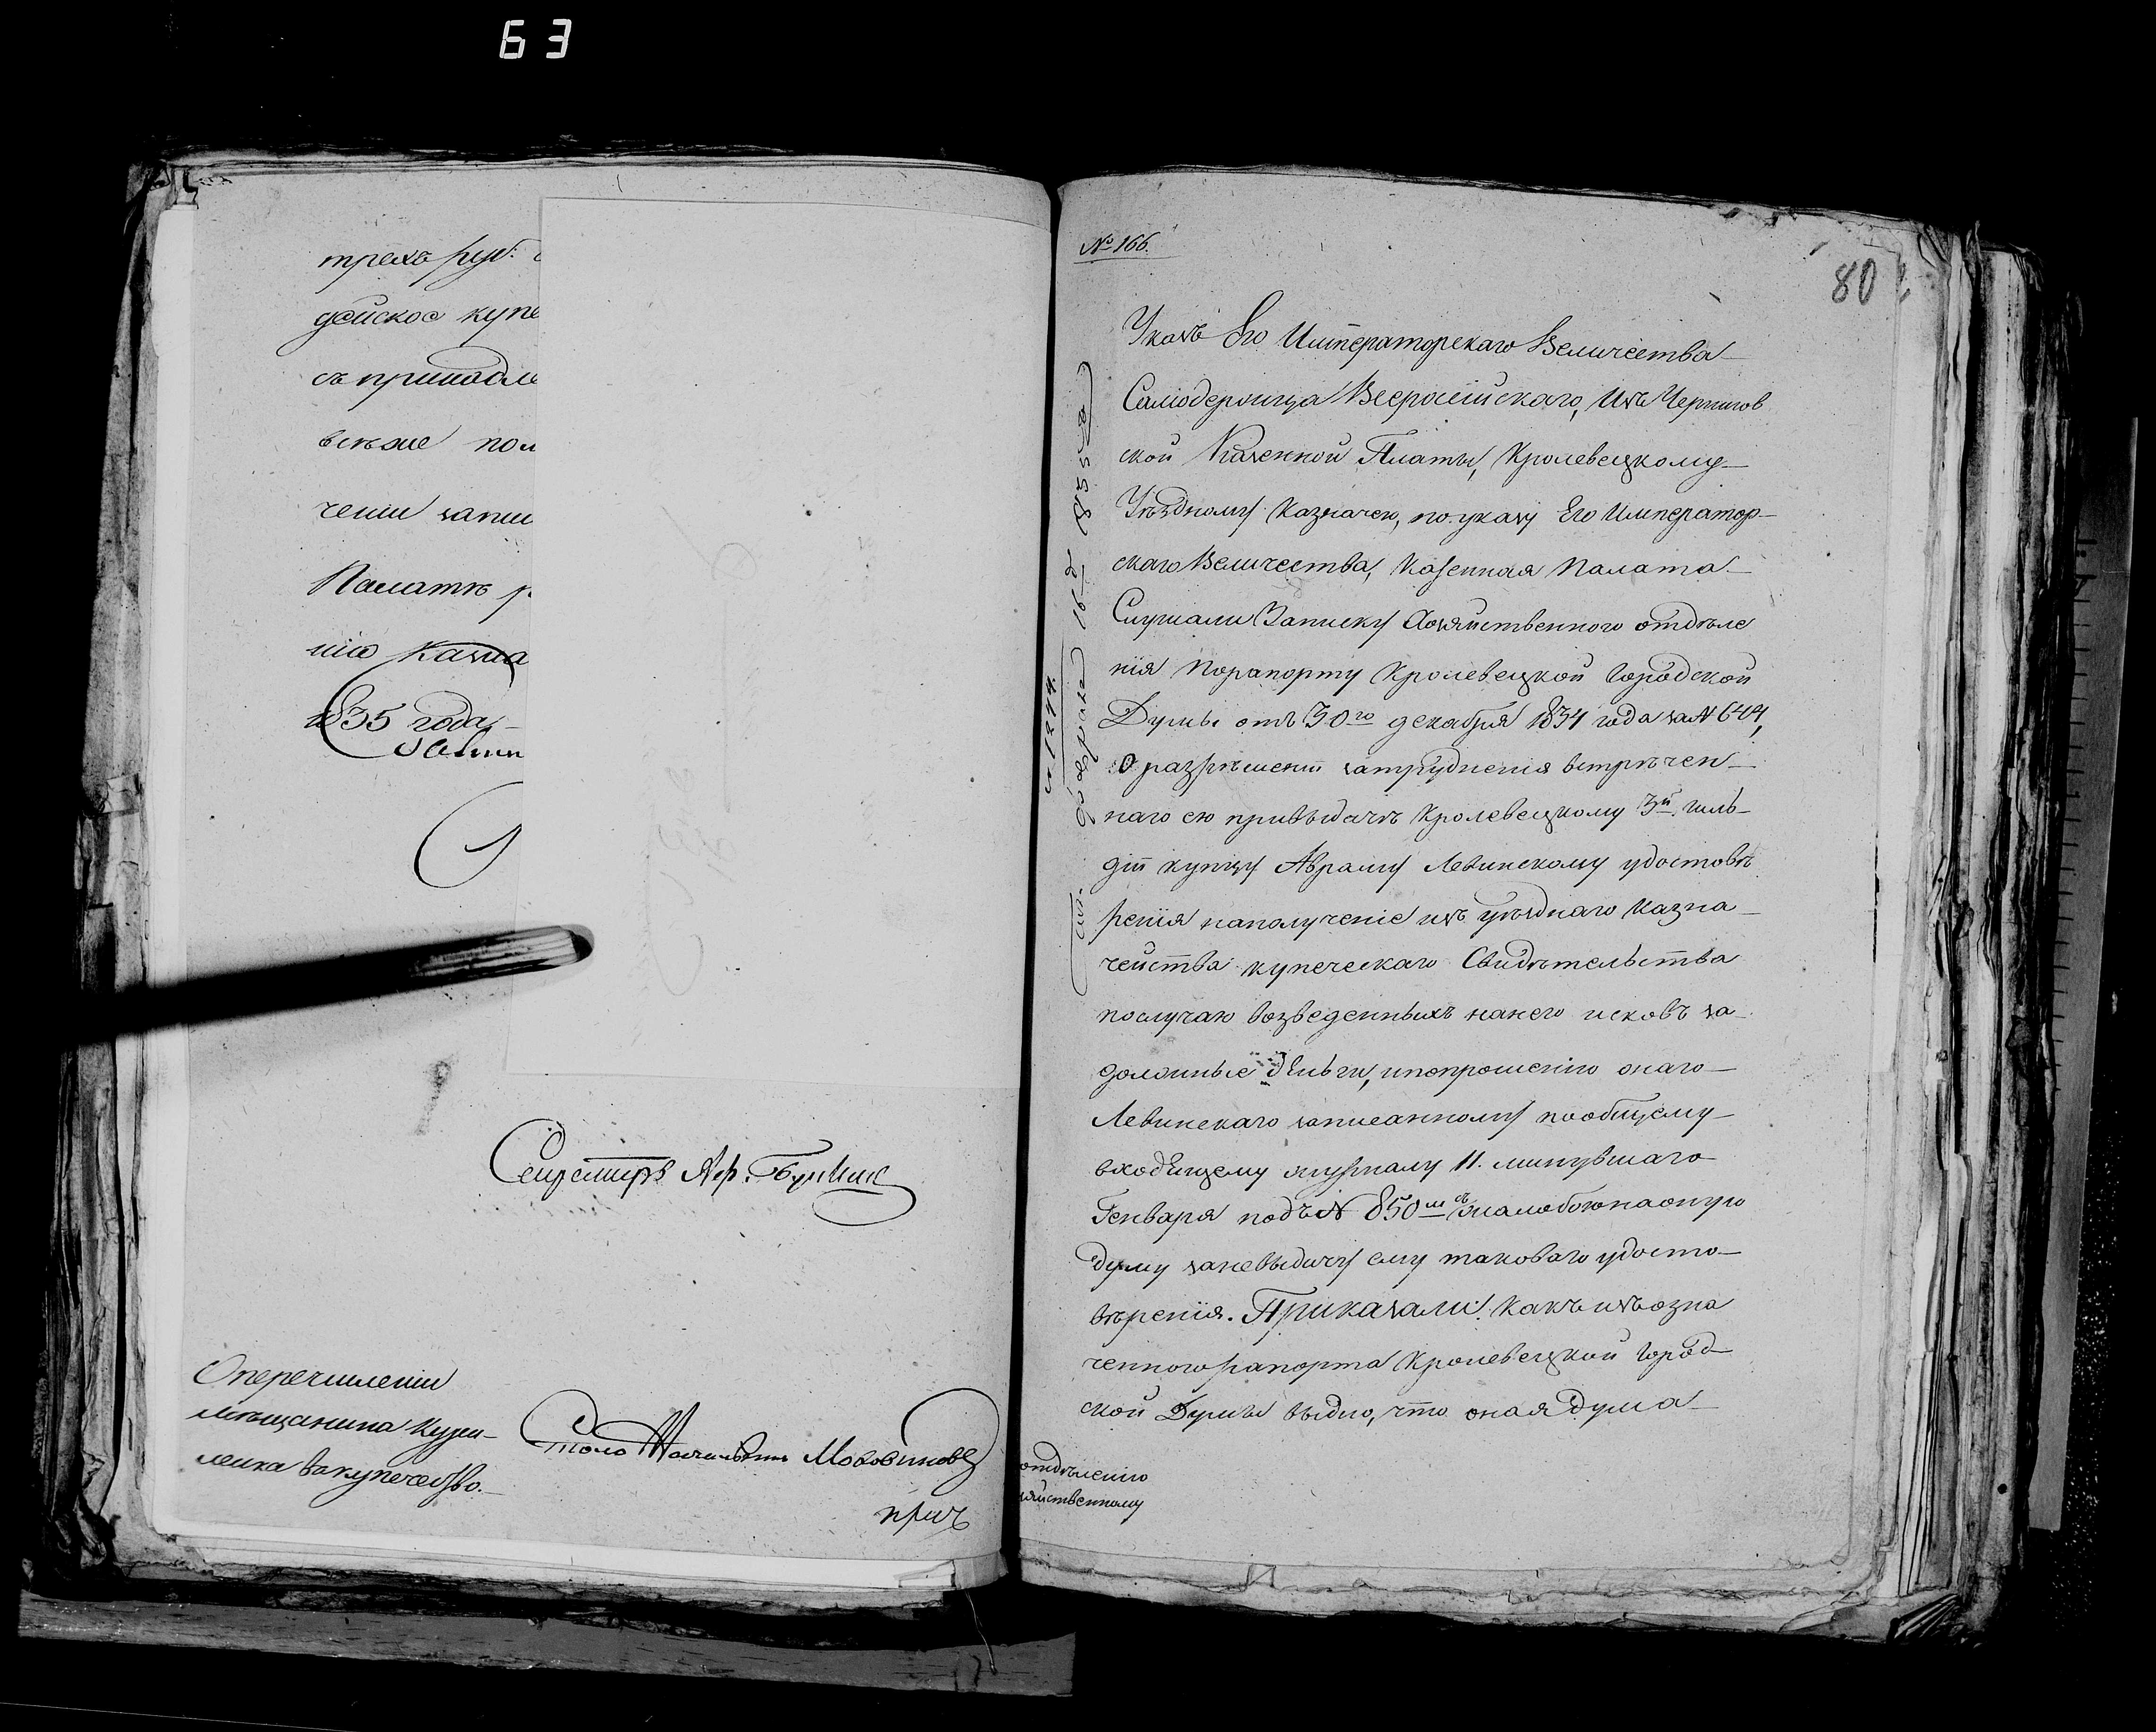 63
трехъ руб:
дейское купе
съ принадле
всѣже пол
ченiи запи
Палатѣ р
нiю Казна
1835 года
Секретарь Аф.
О перечисленiи
мѣщанина Кузьм-
ленка въ купечество.
Столо Начальникъ
№ 166.
80
Указъ Его Императорскаго Величества
Самодержца Всероссiйскаго, изъ Чернигов
ской Казенной Палаты, Кролевецкому
Уѣздному Казначею, по указу Его Император-
скаго Величества, Казенная Палата
Слушали Записку Хозяйственного отдѣле
нiя по рапорту Кролевецкой Городской
Думы отъ 30го декабря 1834 года за № 644,
О разрѣшенiи затрудненiя встрѣчен-
наго ею при выдачѣ Кролевецкому 3й гиль-
дiи купцу Авраму Левинскому удостовѣ
ренiя на полученiе изъ уѣзднаго Казна-
чейства купеческаго Свидѣтельства
по случаю возведенныхъ на него исковъ за
должные деньги, и по прошенiю онаго
Левинскаго записанному по общему
входящему журналу 11. минувшаго
Генваря подъ № 850м съ жалобою на оную
думу за невыдачу ему таковаго удосто-
вѣренiя. Приказали: Какъ изъ озна
ченного рапорта Кролевецкой Город
ской Думы видно, что оная Дума
отдѣленiю
зяйственному